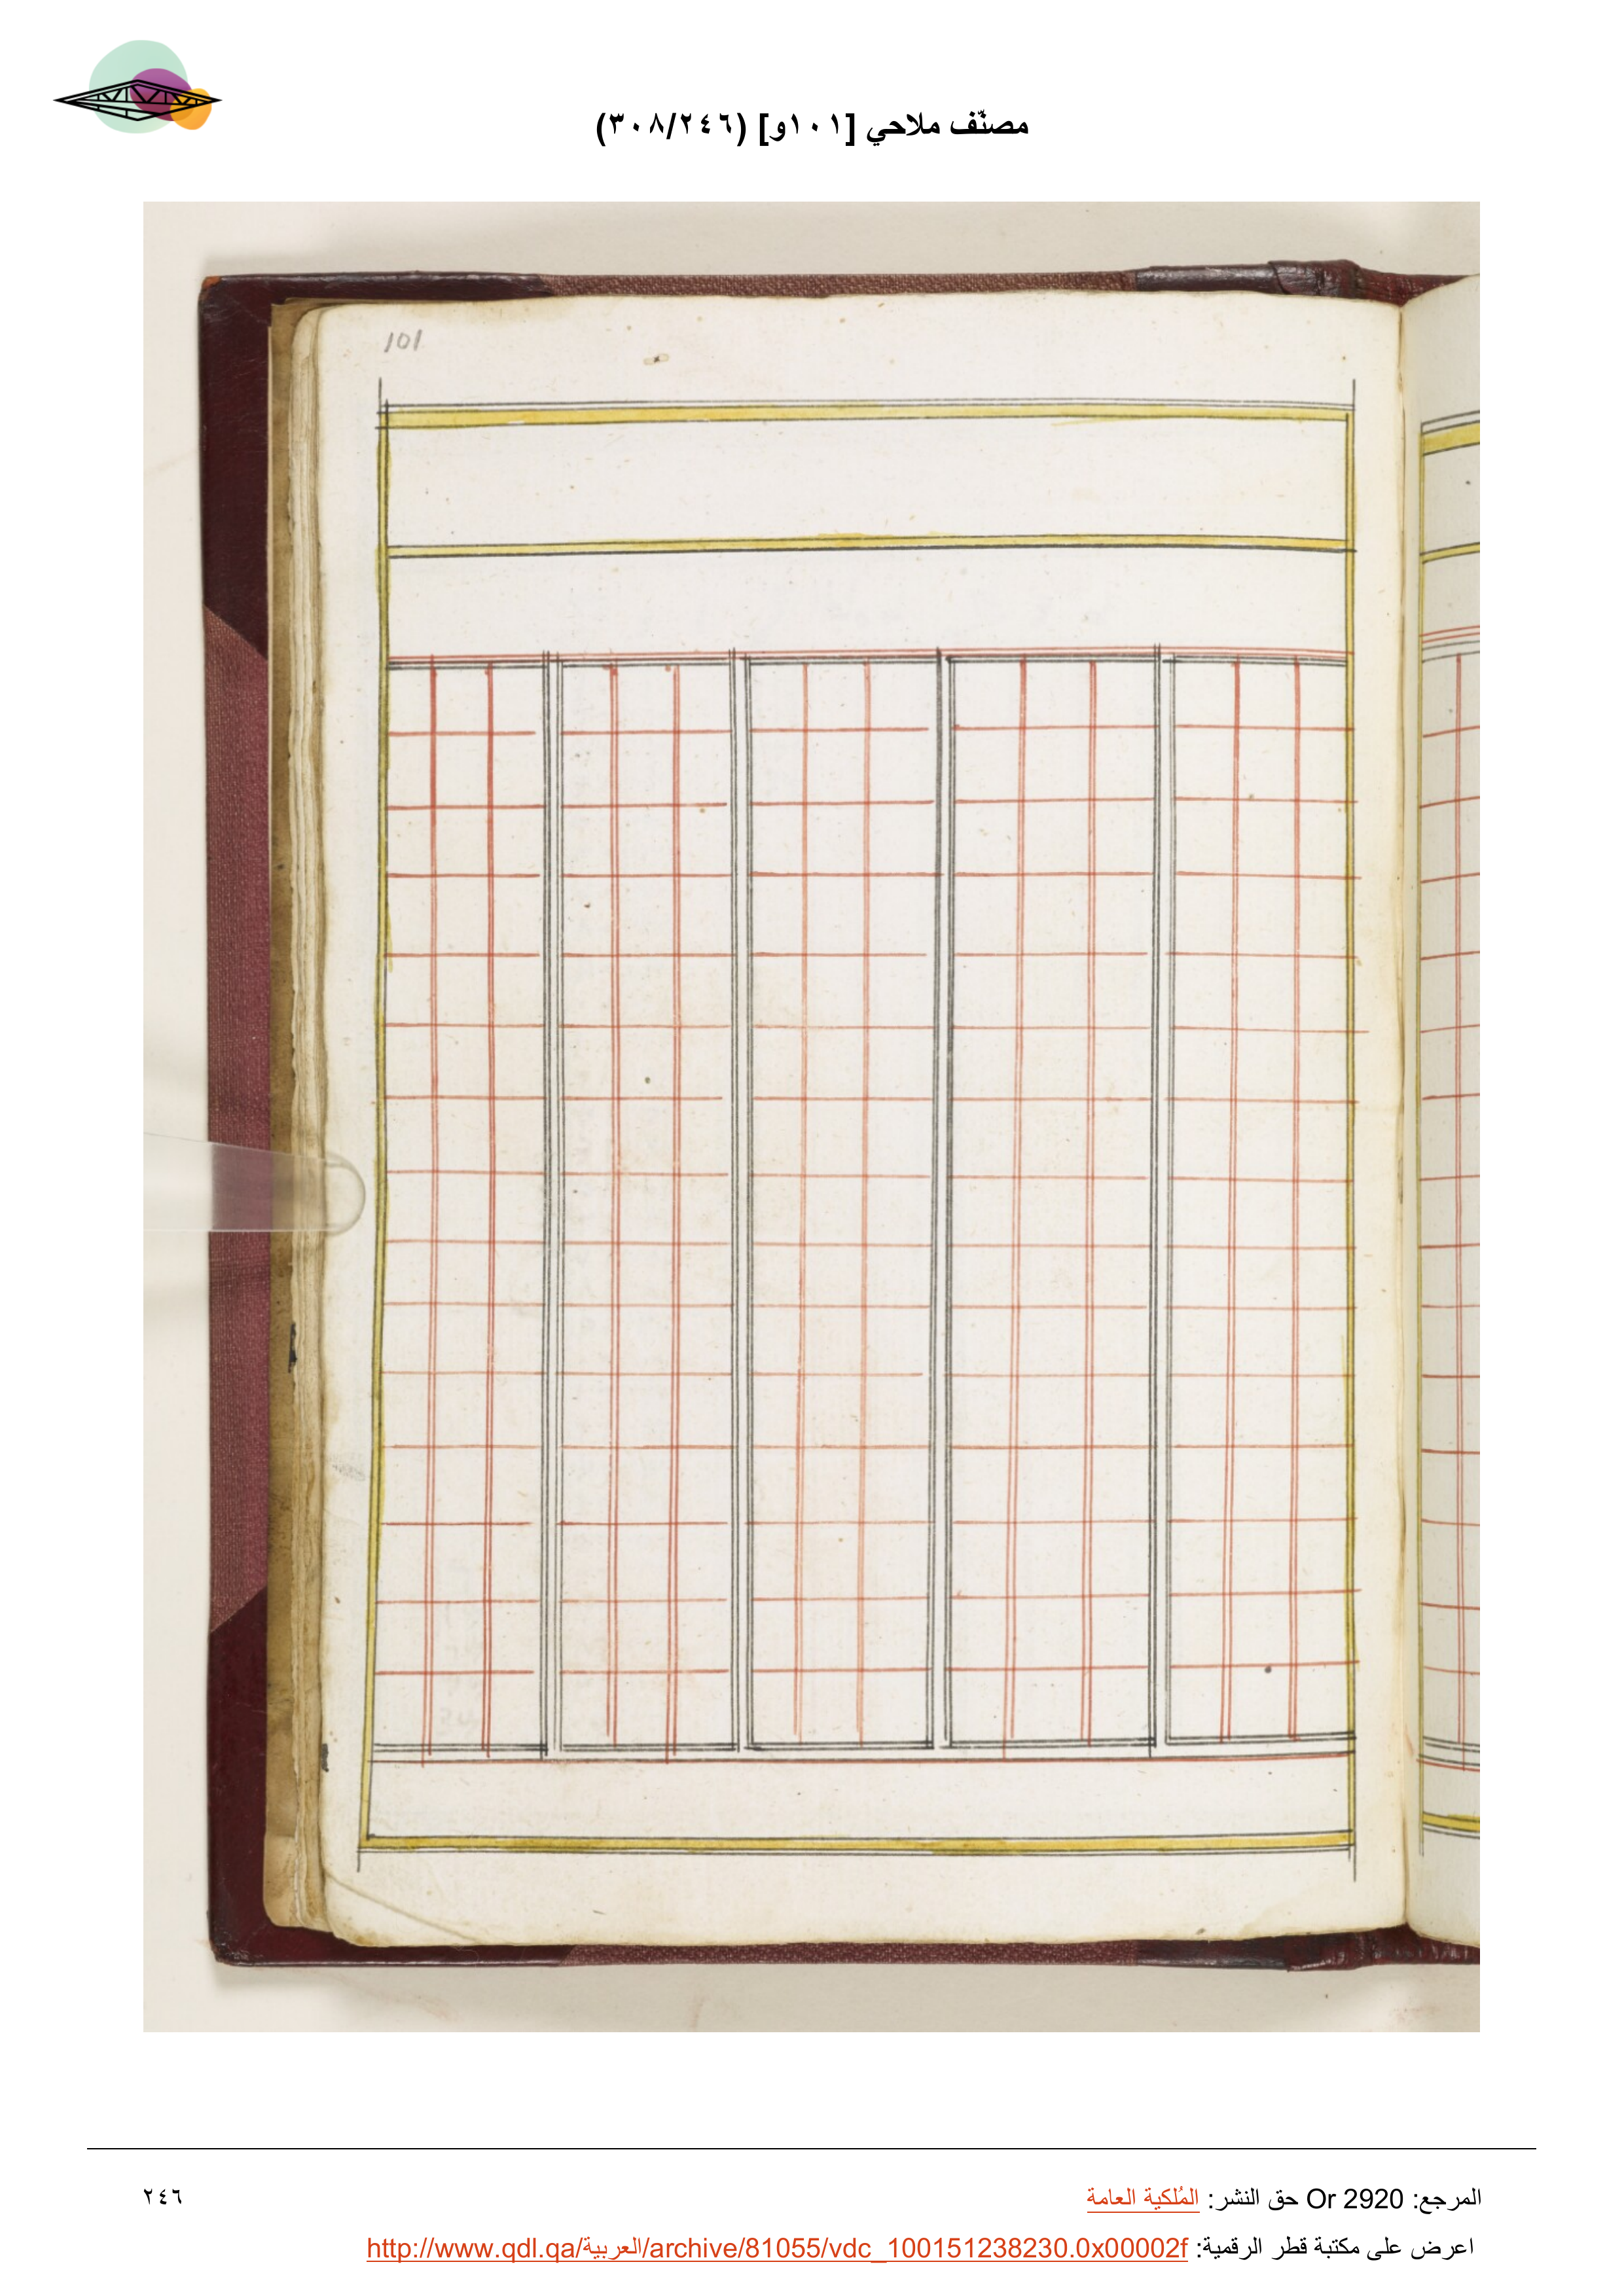 مصنّف ملاحي [١٠١و] (٣٠٨/٢٤٦)
101
المرجع: Or 2920 حق النشر: المُلكية العامة
٢٤٦
اعرض على مكتبة قطر الرقمية: http://www.qdl.qa/العربية/archive/81055/vdc_100151238230.0x00002f